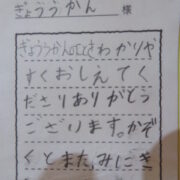 ぎょううかん 様
ぎょううかんのことわかりや
すくおしえてく
ださりありがとう
ございます。かぞ
くとまた、みにき